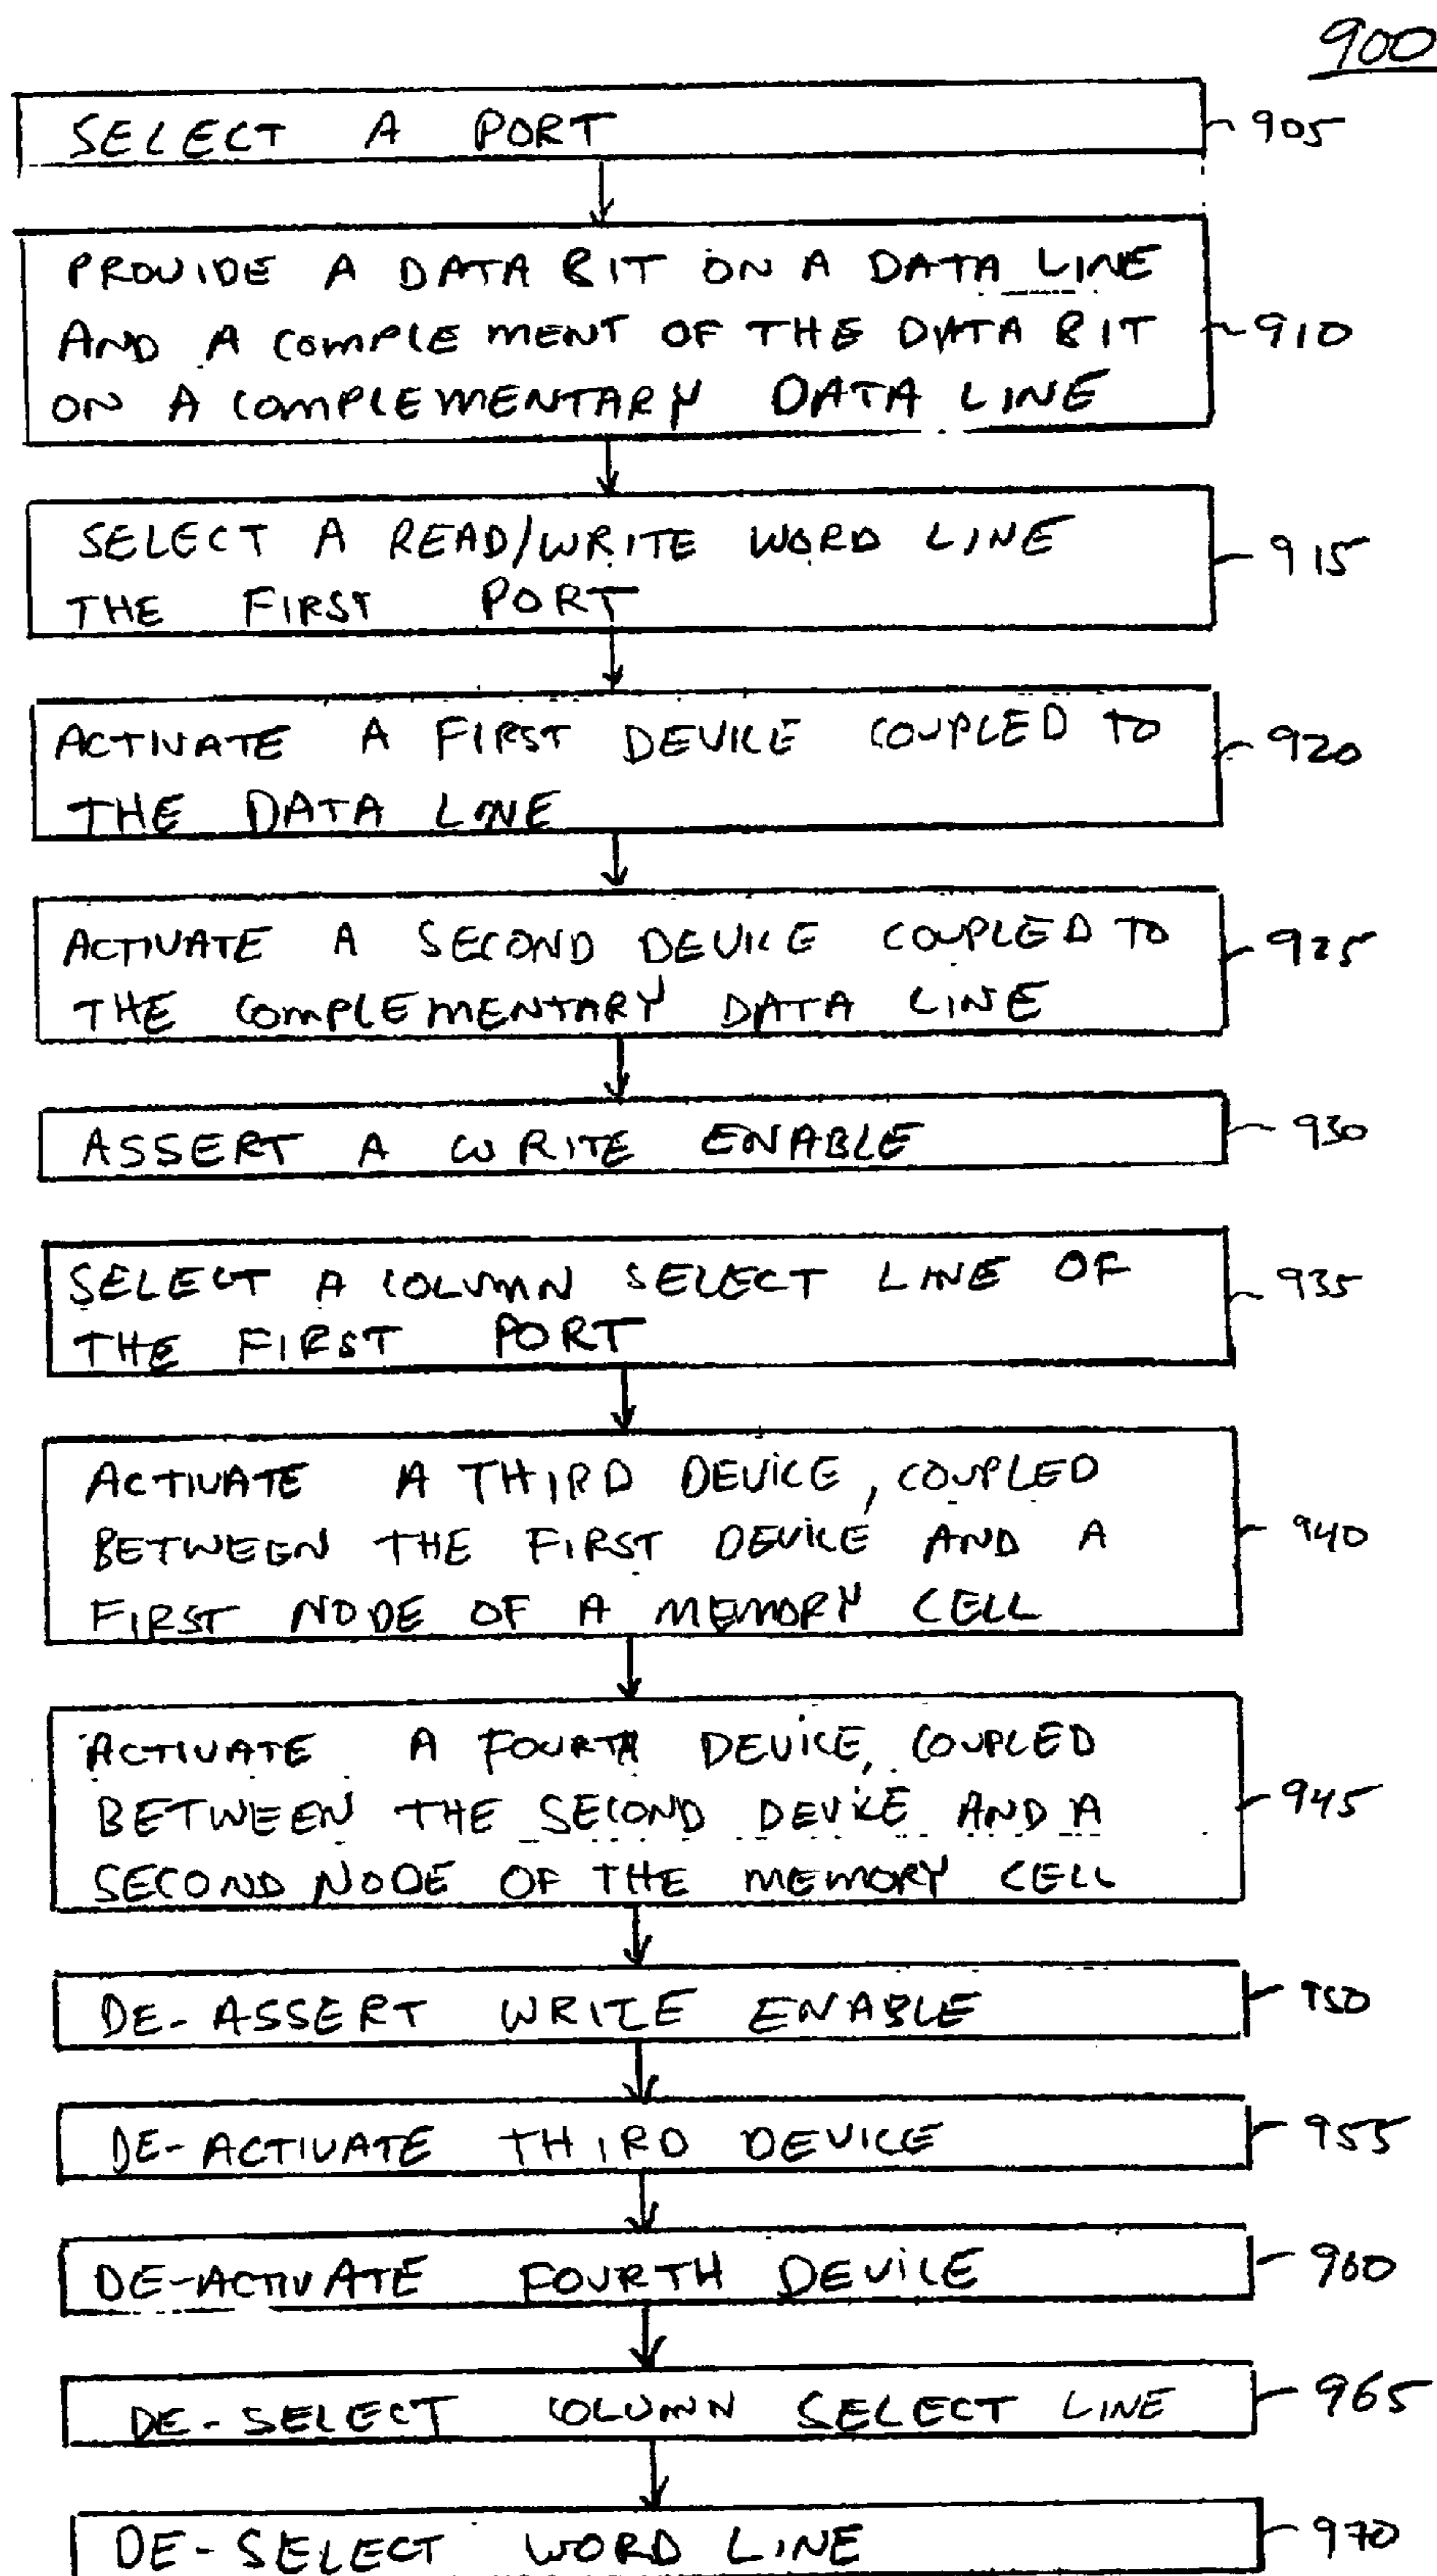 900
SELECT A PORT 905
PROVIDE A DATA BIT ON A DATA LINE
AND A COMPLEMENT OF THE DATA BIT 910
ON A COMPLEMENTARY DATA LINE
SELECT A READ/WRITE WORD LINE 915
THE FIRST PORT
ACTIVATE A FIRST DEVICE COUPLED TO 920
THE DATA LINE
ACTIVATE A SECOND DEVICE COUPLED TO 925
THE COMPLEMENTARY DATA LINE
ASSERT A WRITE ENABLE 930
SELECT A COLUMN SELECT LINE OF 935
THE FIRST PORT
ACTIVATE A THIRD DEVICE, COUPLED
BETWEEN THE FIRST DEVICE AND A 940
FIRST NODE OF A MEMORY CELL
ACTIVATE A FOURTH DEVICE, COUPLED
BETWEEN THE SECOND DEVICE AND A 945
SECOND NODE OF THE MEMORY CELL
DE-ASSERT WRITE ENABLE 950
DE-ACTIVATE THIRD DEVICE 955
DE-ACTIVATE FOURTH DEVICE 960
DE-SELECT COLUMN SELECT LINE 965
DE-SELECT WORD LINE 970